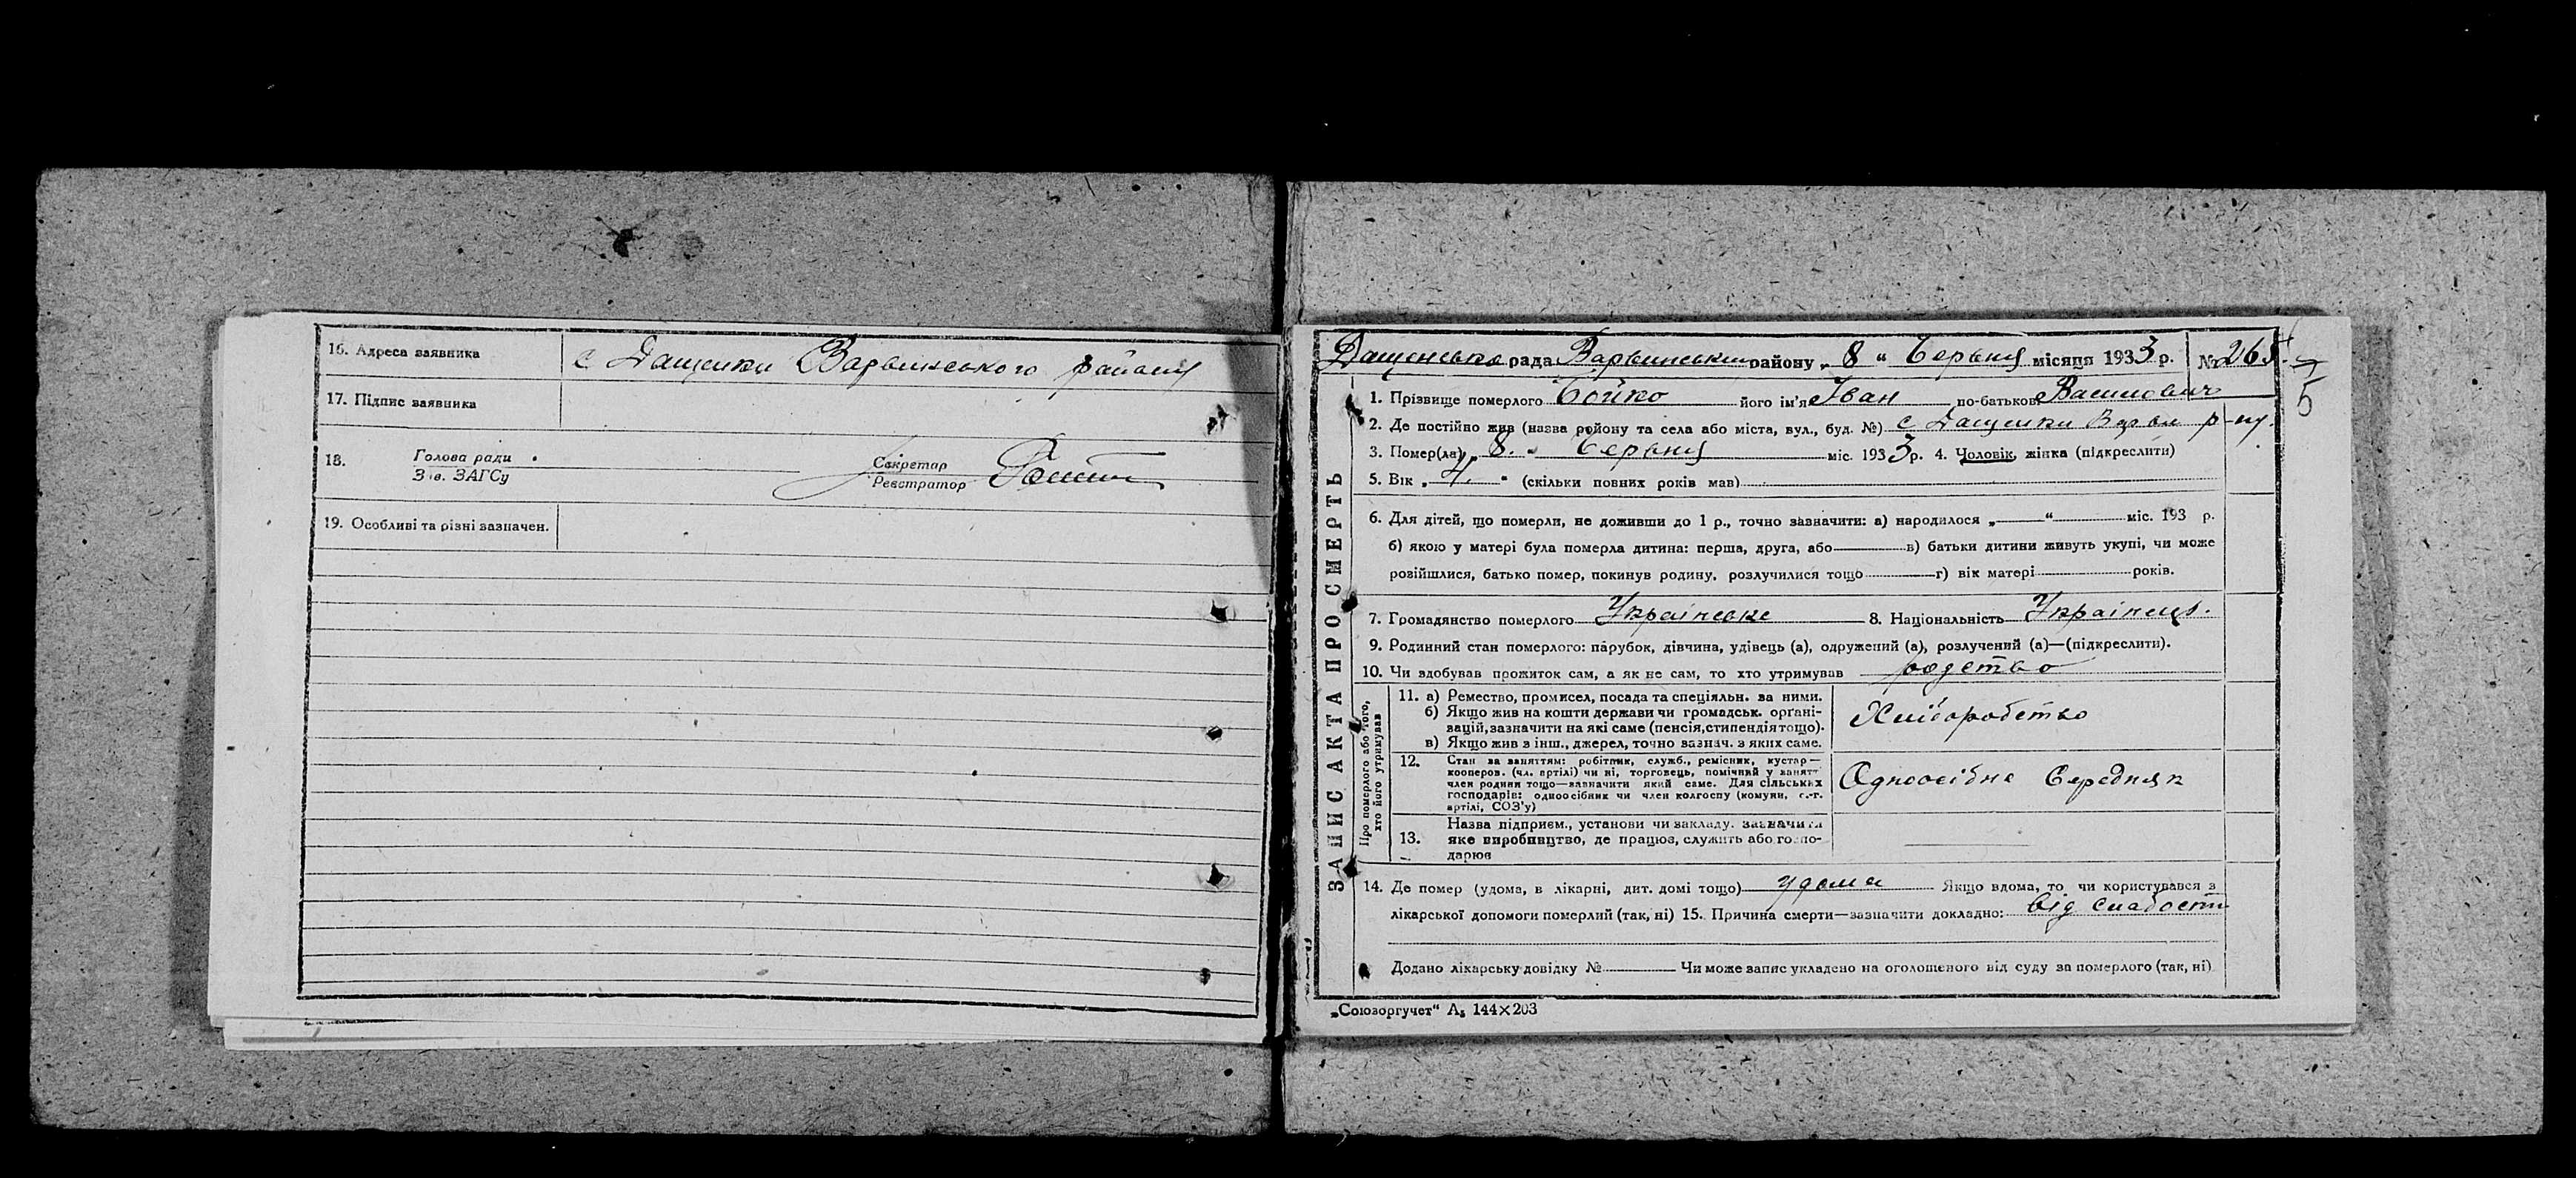 16. Адреса заявника с Дащенки Варвинського району
17. Підпис заявника
18. Голова ради Секретар
Зав. ЗАГСу Реєстратор
19. Особливі та різні зазначен.
Дащенська рада Варвинським району „8“ Червня місяця 1933 р. №
5
ЗАПИС АКТА ПРО СМЕРТЬ
1. Прізвище померлого Бойко його ім'я Іван по-батькові Васильович
2. Де постійно жив (назва району та села або міста, вул., буд. №) с Дащенки Варви р-ну.
3. Помер(ла) „8.“ Червня міс. 1933 р. 4. Чоловік, жінка (підкреслити)
5. Вік „4.“ (скільки повних років мав)
6. Для дітей, що померли, не доживши до 1 р., точно зазначити: а) народилося „ “ міс. 193 р.
б) якою у матері була померла дитина: перша, друга, або в) батьки дитини живуть укупі, чи може
розійшлися, батько помер, покинув родину, розлучилися тощо г) вік матері років.
7. Громадянство померлого Українське 8. Національність Українець.
9. Родинний стан померлого: парубок, дівчина, удівець (а), одружений (а), розлучений (а)—(підкреслити).
10. Чи здобував прожиток сам, а як не сам, то хто утримував
Про померлого або того,
хто його утримував
11. а) Ремество, промисел, посада та спеціяльн. за ними.
б) Якщо жив на кошти держави чи громадськ. органі-
зацій, зазначити на які саме (пенсія, стипендія тощо).
в) Якщо жив з інш., джерел, точно зазнач. з яких саме.
Хліборобство
12. Стан за заняттям: робітник, служб., ремісник, кустар—
кооперов. (чл. артілі) чи ні, торговець, помічний у занятт
член родини тощо—зазначити який саме. Для сільських
господарів: одноосібник чи член колгоспу (комуни, с.-г.
артілі, СОЗ'у)
Одноосібне Середняк
13. Назва підприєм., установи чи закладу. зазначити
яке виробництво, де працює, служить або госпо-
дарює
14. Де помер (удома, в лікарні, дит. домі тощо) удома Якщо вдома, то чи користувався з
лікарської допомоги померлий (так, ні) 15. Причина смерти—зазначити докладно: від слабости
Додано лікарську довідку № Чи може запис укладено на оголошеного від суду за померлого (так, ні)
„Союзоргучет“ А₅ 144×203